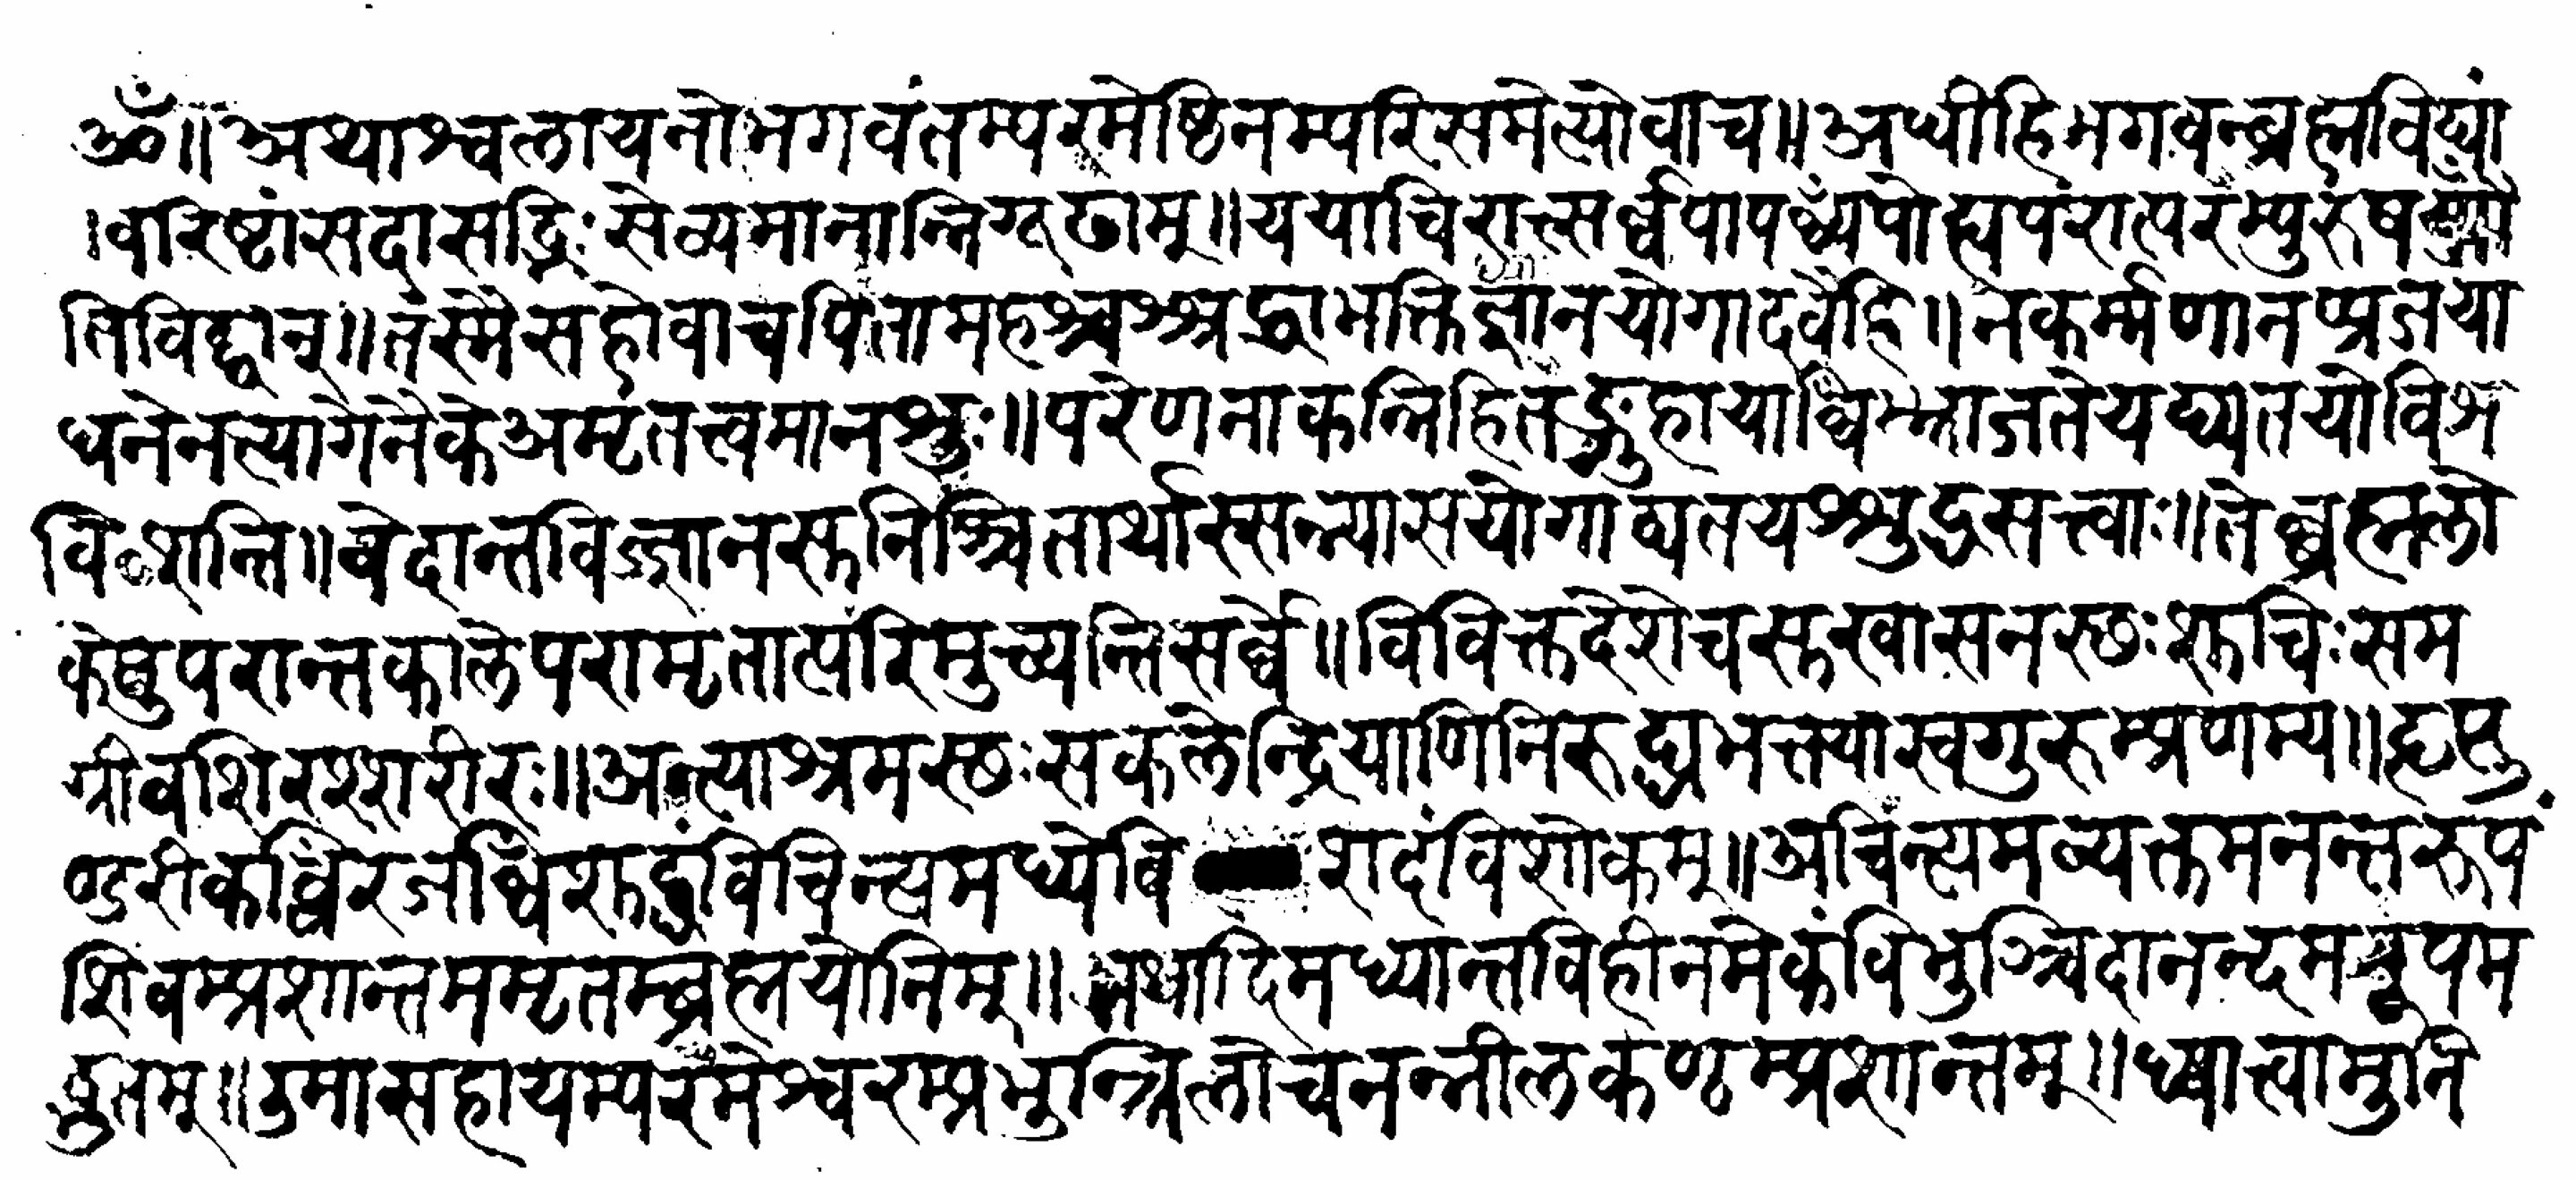 ॐ॥ अथाश्वलायनोभगवंतम्परमेष्ठिनम्परिसमेत्योवाच॥ अधीहिभगवन्ब्रह्मविद्यां
।वरिष्टांसदासद्भिःसेव्यमानान्निगूढाम्॥ ययाचिरात्सर्व्वपापव्यँपोह्यपरात्परम्पुरुष
तिविद्वान्॥ तस्मैसहोवाचपितामहश्चश्श्रद्धाभक्तिज्ञानयोगादवैहि॥ नकर्म्मणानप्प्रजया
धनेनत्यागेनैकेअमृतत्त्वमानश्शुः॥ परेणनाकन्निहितङ्गुहायाव्विब्भ्राजतेयद्यतयोविश
विशन्ति॥ वेदान्तविज्ज्ञानसुनिश्चितार्थास्सन्न्यासयोगाद्यतयश्शुद्धसत्त्वाः॥ तेब्ब्रह्मलो
केषुपरान्तकालेपरामृतात्परिमुच्यन्तिसर्व्वे॥ विविक्तदेशेचसुखासनस्छःशुचिःसम
ग्रीवशिरश्शरीरः॥ अन्त्याश्रमस्छःसकलेन्द्रियाणिनिरुद्ध्यभक्त्यास्वगुरुम्प्रणम्य॥ हृत्पु
ण्डरीकव्विरजव्विशुद्धंविचिन्त्यमध्येवि शदंविशोकम्॥ अचिन्त्यमव्यक्तमनन्तरूपं
शिवम्प्रशान्तममृतम्ब्रह्मयोनिम्॥ तथादिमध्यान्तविहीनमेकंविभुञ्चिदानन्दमरूपम
द्भुतम्॥ उमासहायम्परमेश्वरम्प्रभुन्त्रिलोचनन्नीलकण्ठम्प्रशान्तम्॥ ध्यात्वामुनि